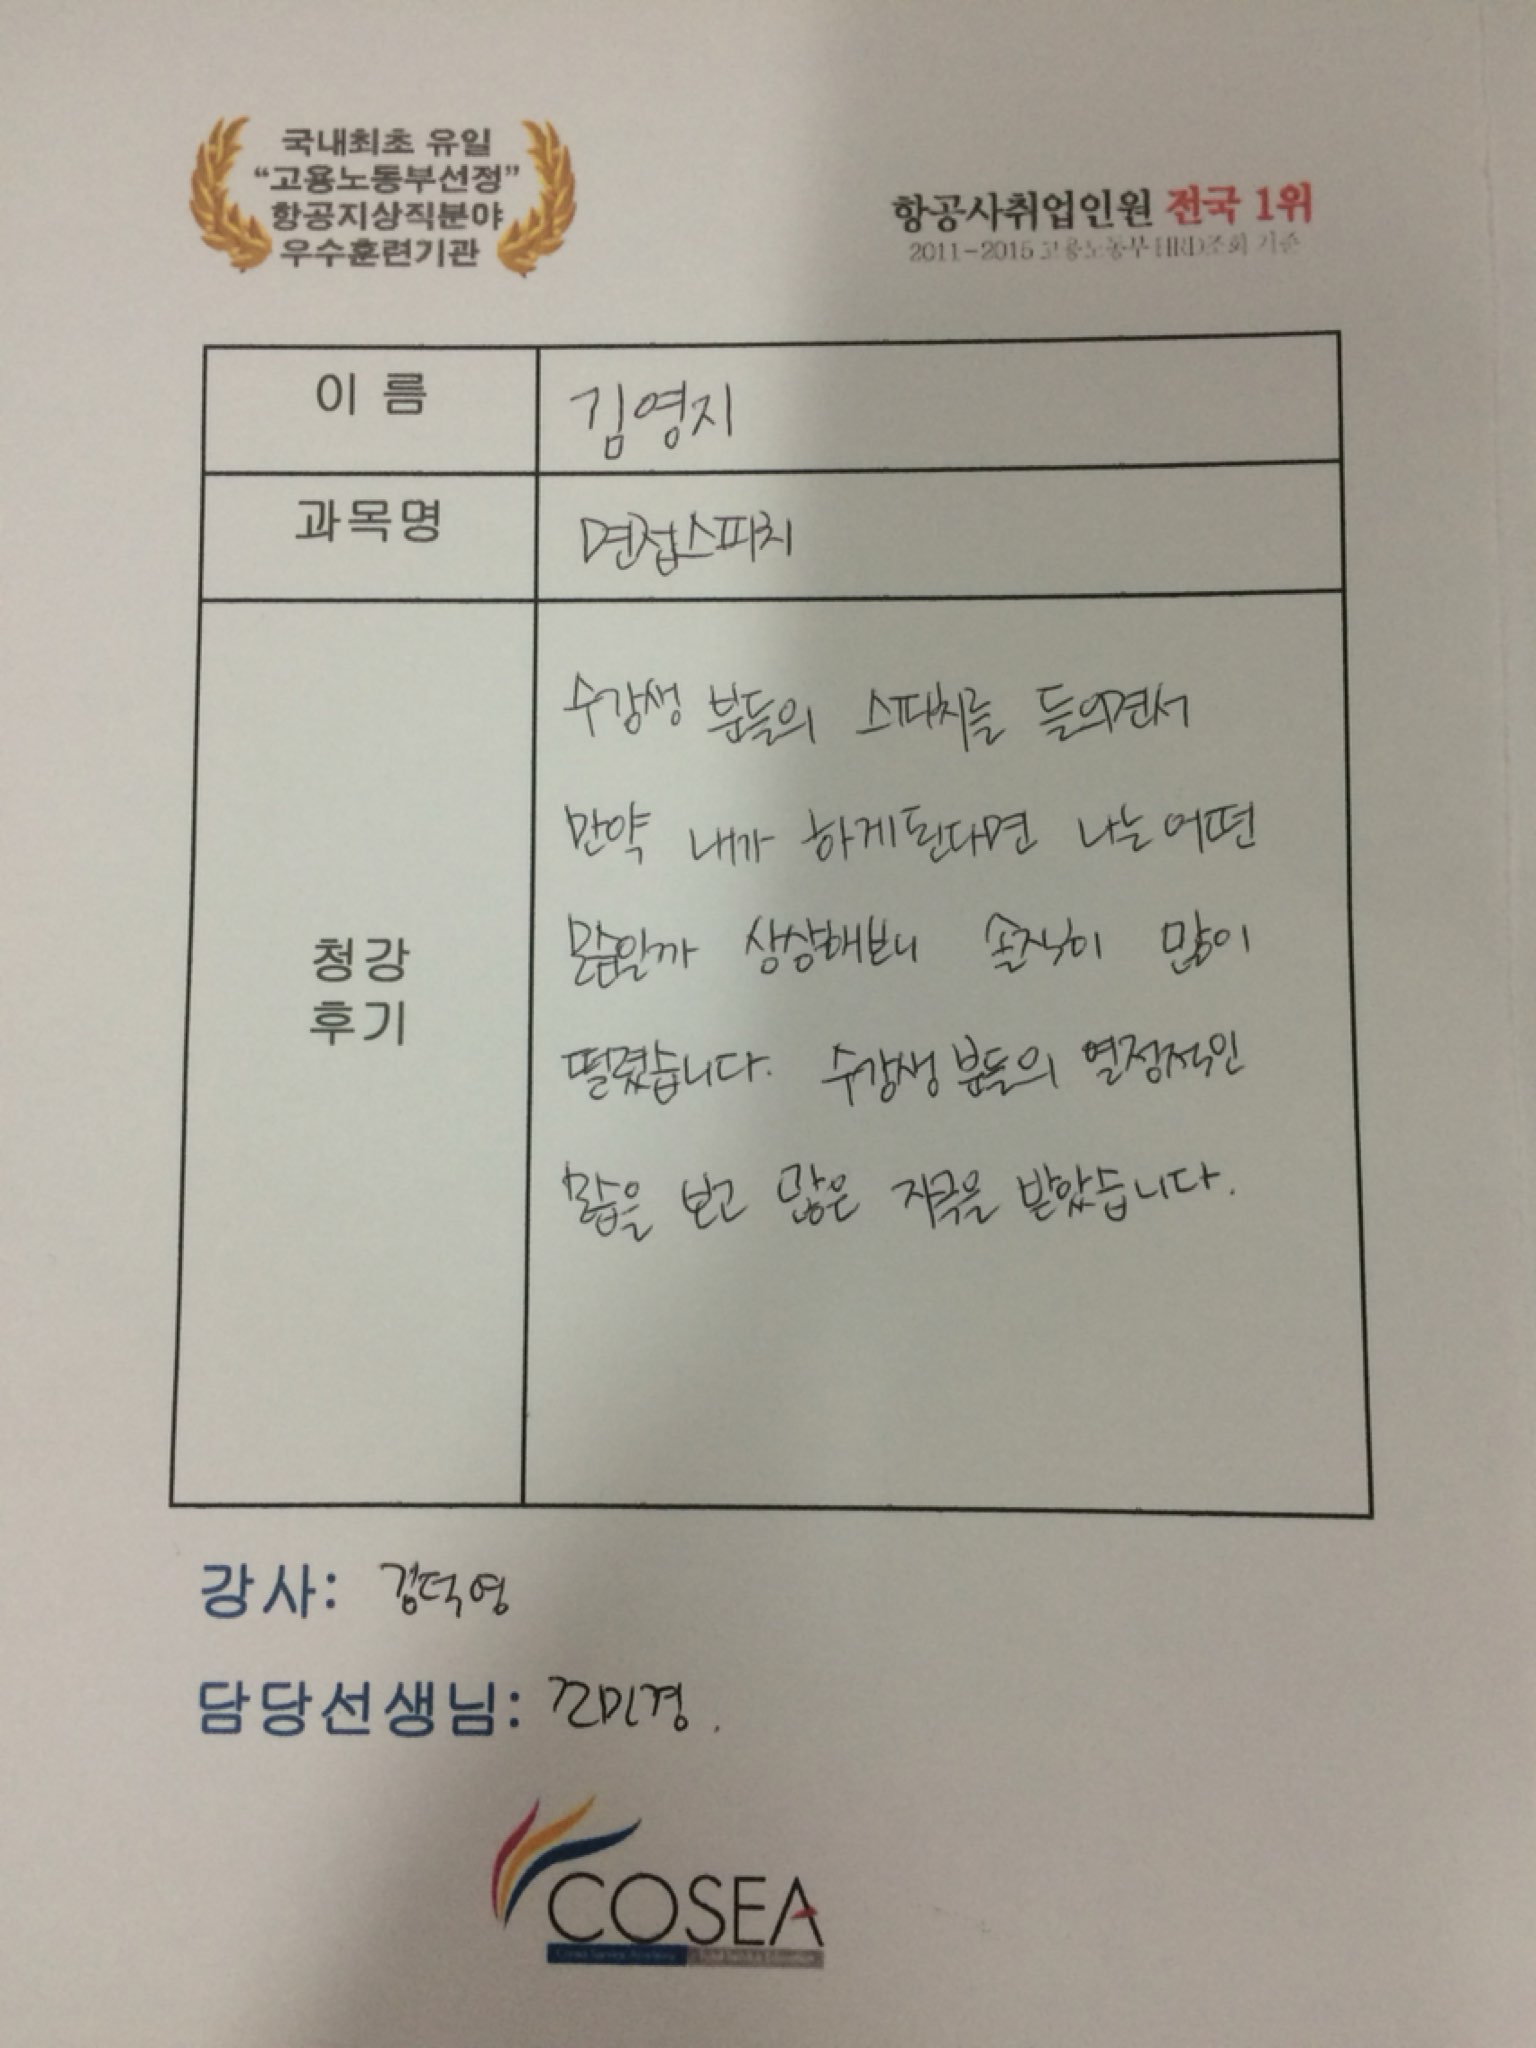 국내최초 유일
“고용노동부선정”
항공지상직분야
우수훈련기관
항공사취업인원 전국 1위
2011-2015 고용노동부HRD조회 기준
이 름
김영지
과목명
면접스피치
수강생 분들의 스피치를 들으면서
만약 내가 하게된다면 나는 어떤
모습일까 상상해보니 솔직히 많이
떨렸습니다. 수강생 분들의 열정적인
모습을 보고 많은 자극을 받았습니다.
청강
후기
강사: 김덕영
담당선생님: 조민경.
COSEA